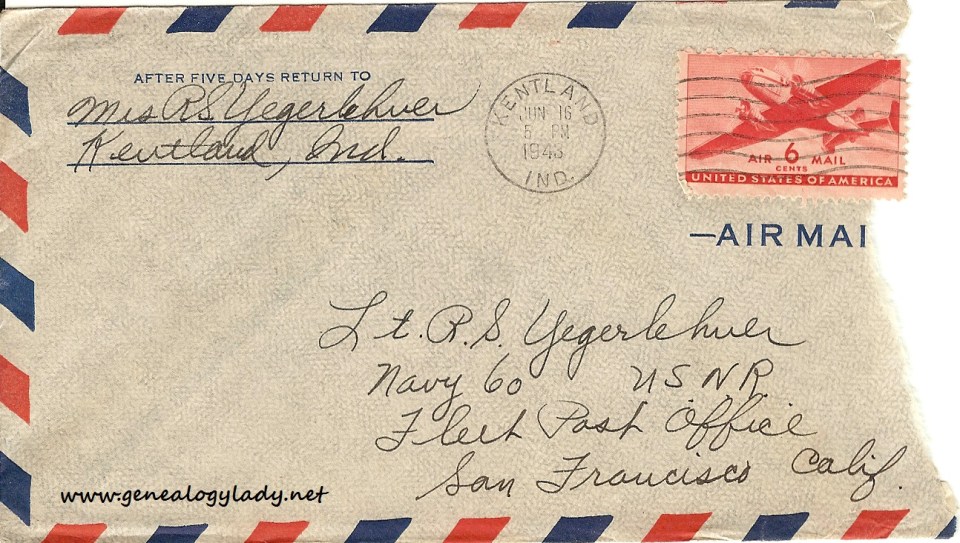 AFTER FIVE DAYS RETURN TO
Mrs R S Yegerlehner
Kentland, Ind.
KENTLAND
JUN 16
5 PM
1943
IND.
AIR 6 MAIL
CENTS
UNITED STATES OF AMERICA
—AIR MAI
Lt. R. S. Yegerlehner
Navy 60 USNR
Fleet Post Office
San Francisco Calif.
www.genealogylady.net